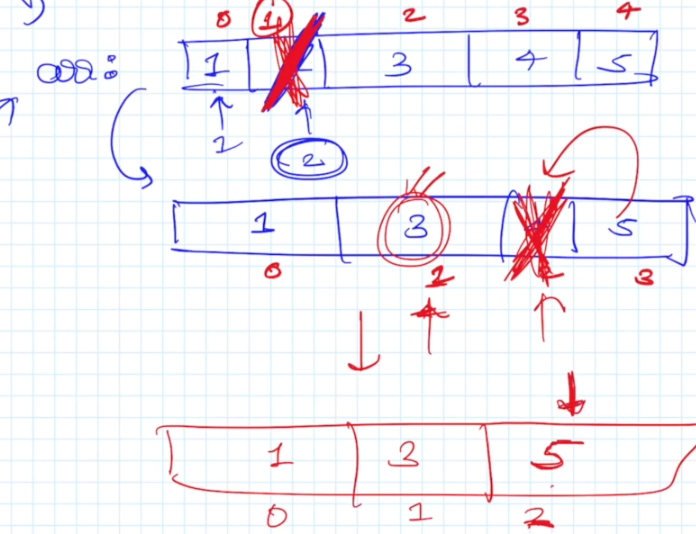 0 1 2 3 4
arr: 1 3 4 5
1 2
1 3 5
0 1 2 3
1 3 5
0 1 2